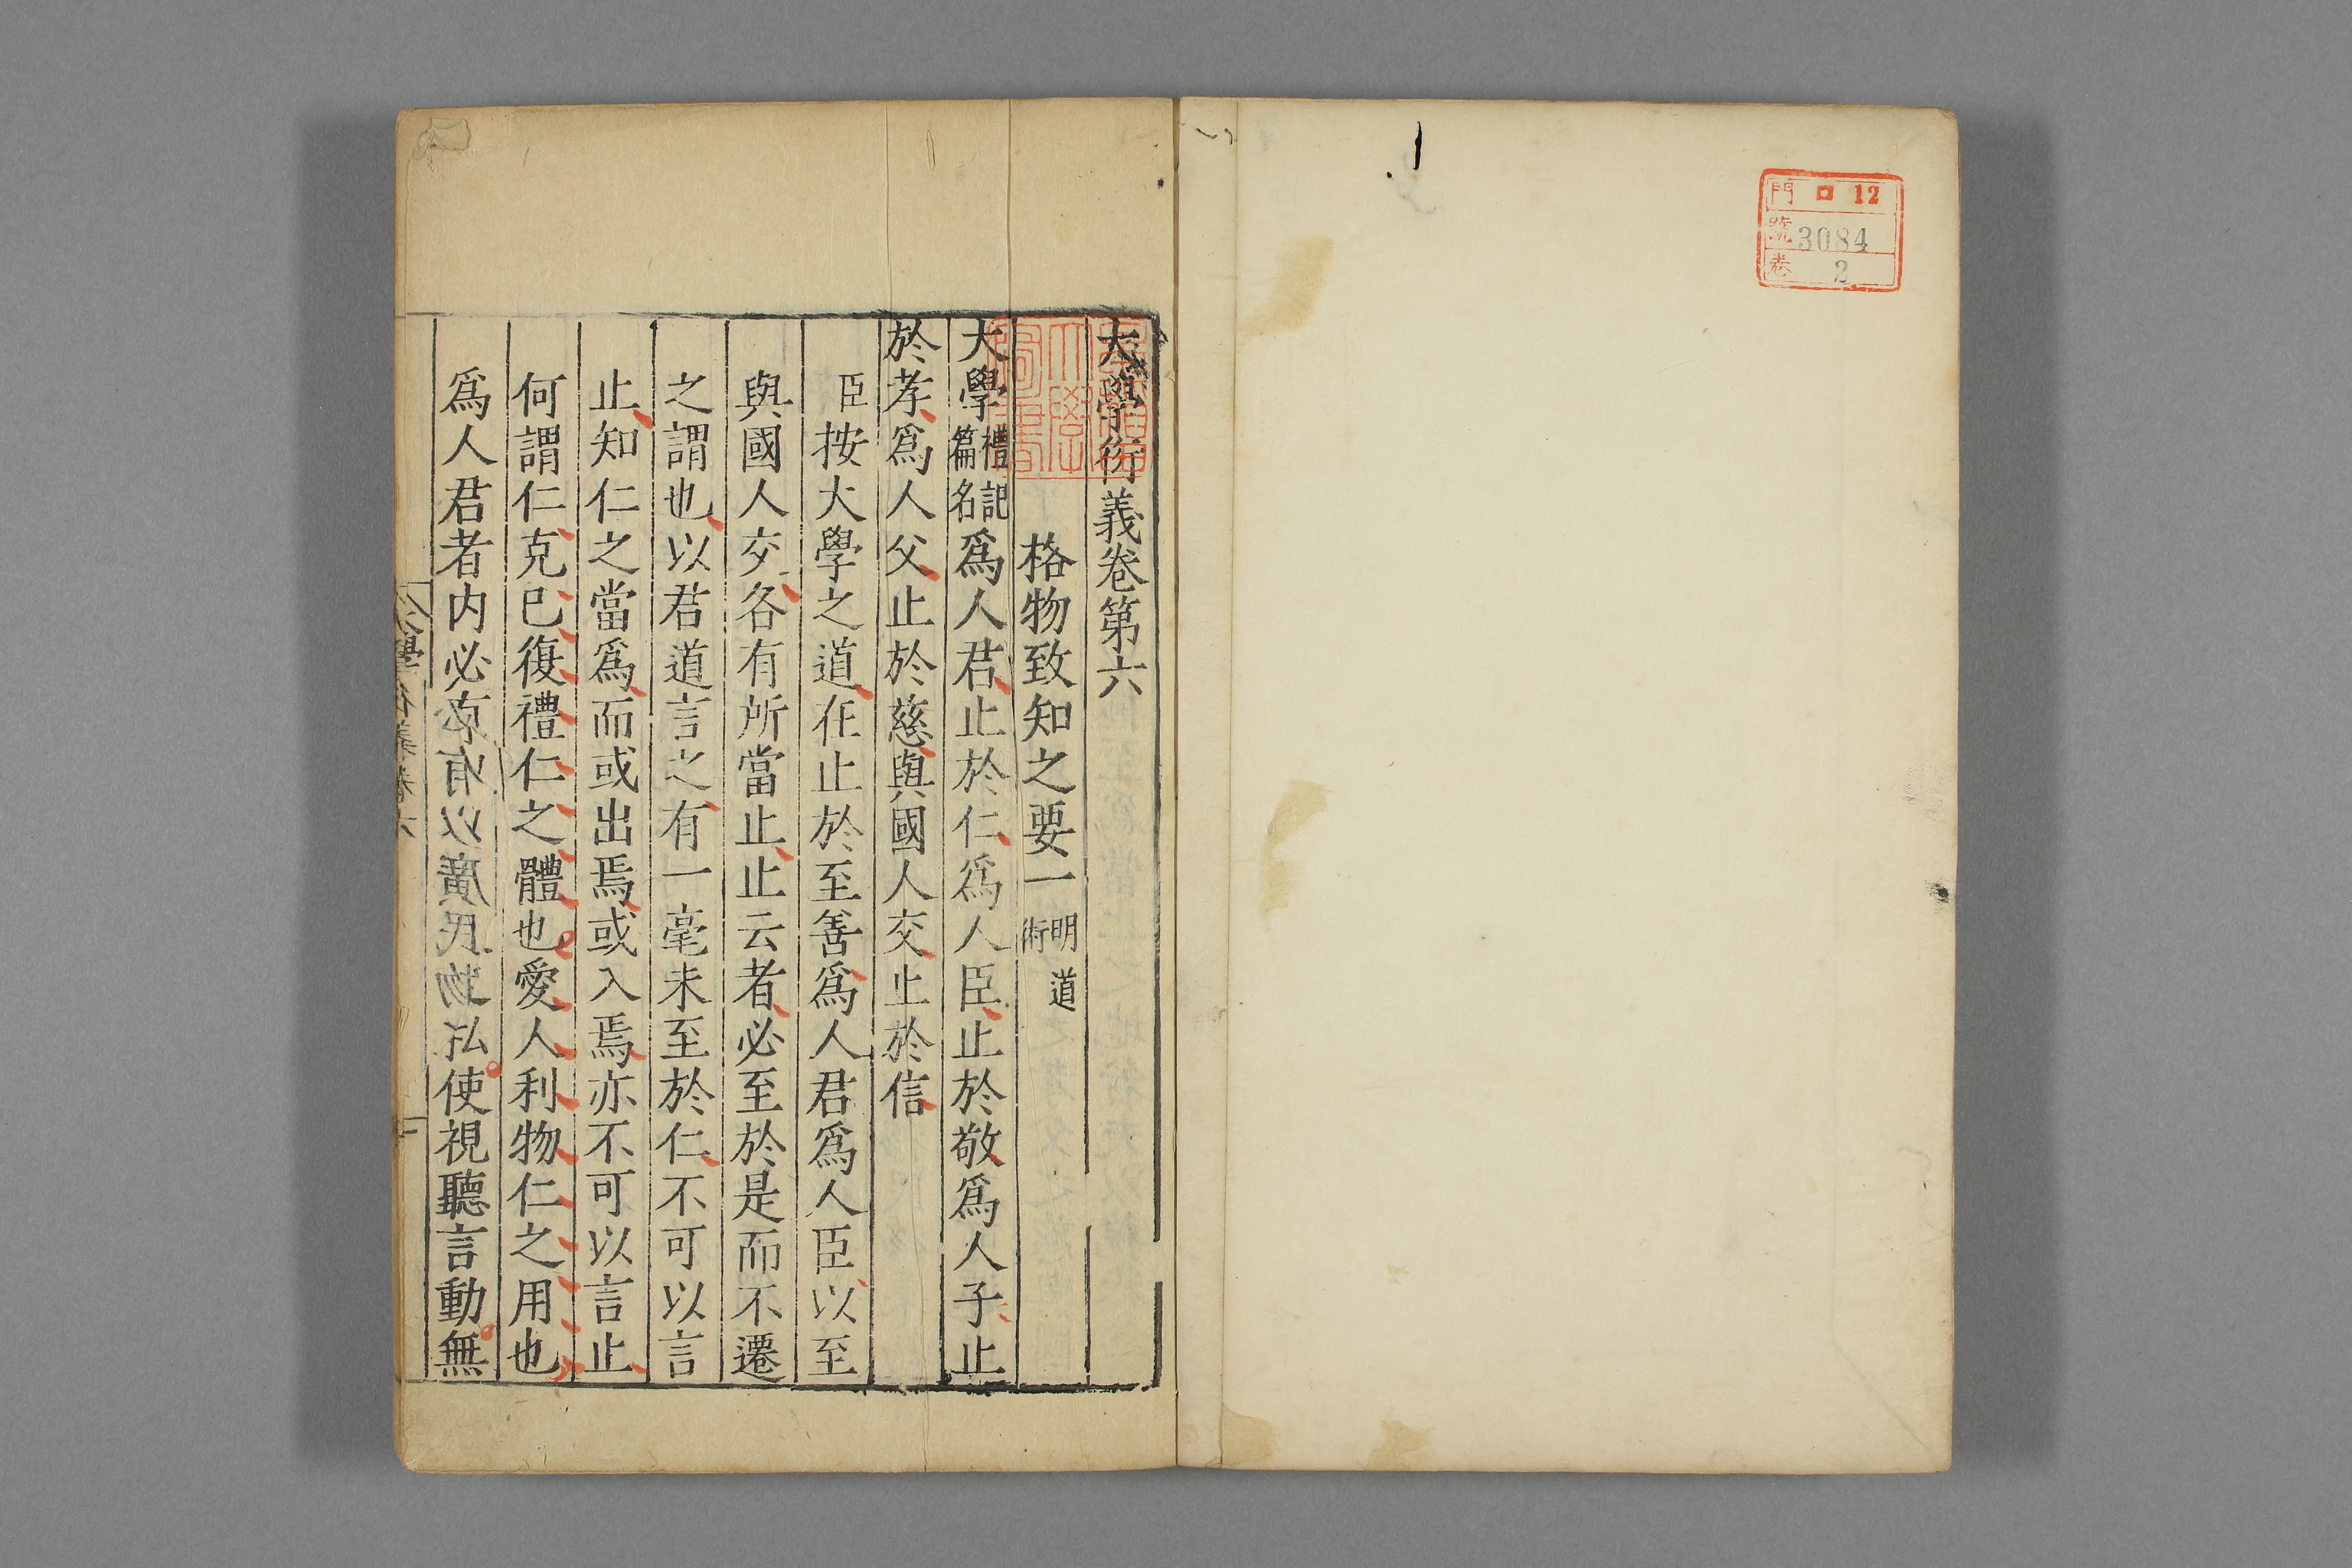 門 ロ 12
號 3084
卷 2
早稻田
大學
圖書
大學衍義卷第六
格物致知之要一 明道術
大學禮記篇名爲人君止於仁爲人臣止於敬爲人子止
於孝爲人父止於慈與國人交止於信
臣按大學之道在止於至善爲人君爲人臣以至
與國人交各有所當止止云者必至於是而不遷
之謂也以君道言之有一毫未至於仁不可以言
止知仁之當爲而或出焉或入焉亦不可以言止
何謂仁克已復禮仁之體也愛人利物仁之用也
爲人君者内必私使視聽言動無